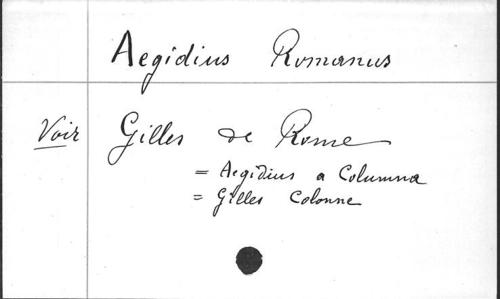 Aegidius Romanus
Voir Gilles de Rome
= Aegidius a Columna
= Gilles Colonne